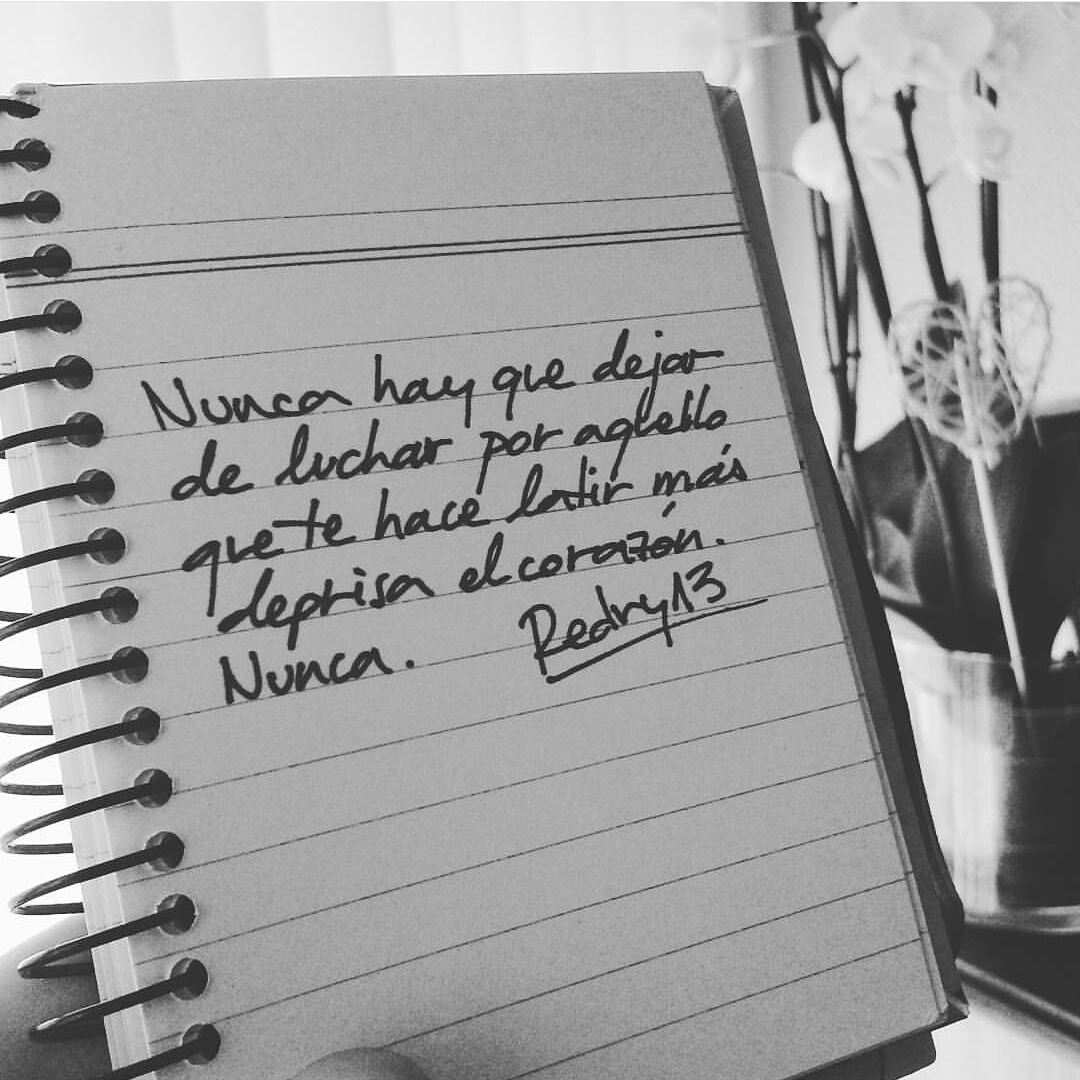 Nunca hay que dejar
de luchar por aquello
que te hace latir más
deprisa el corazón.
Nunca.
Redry13